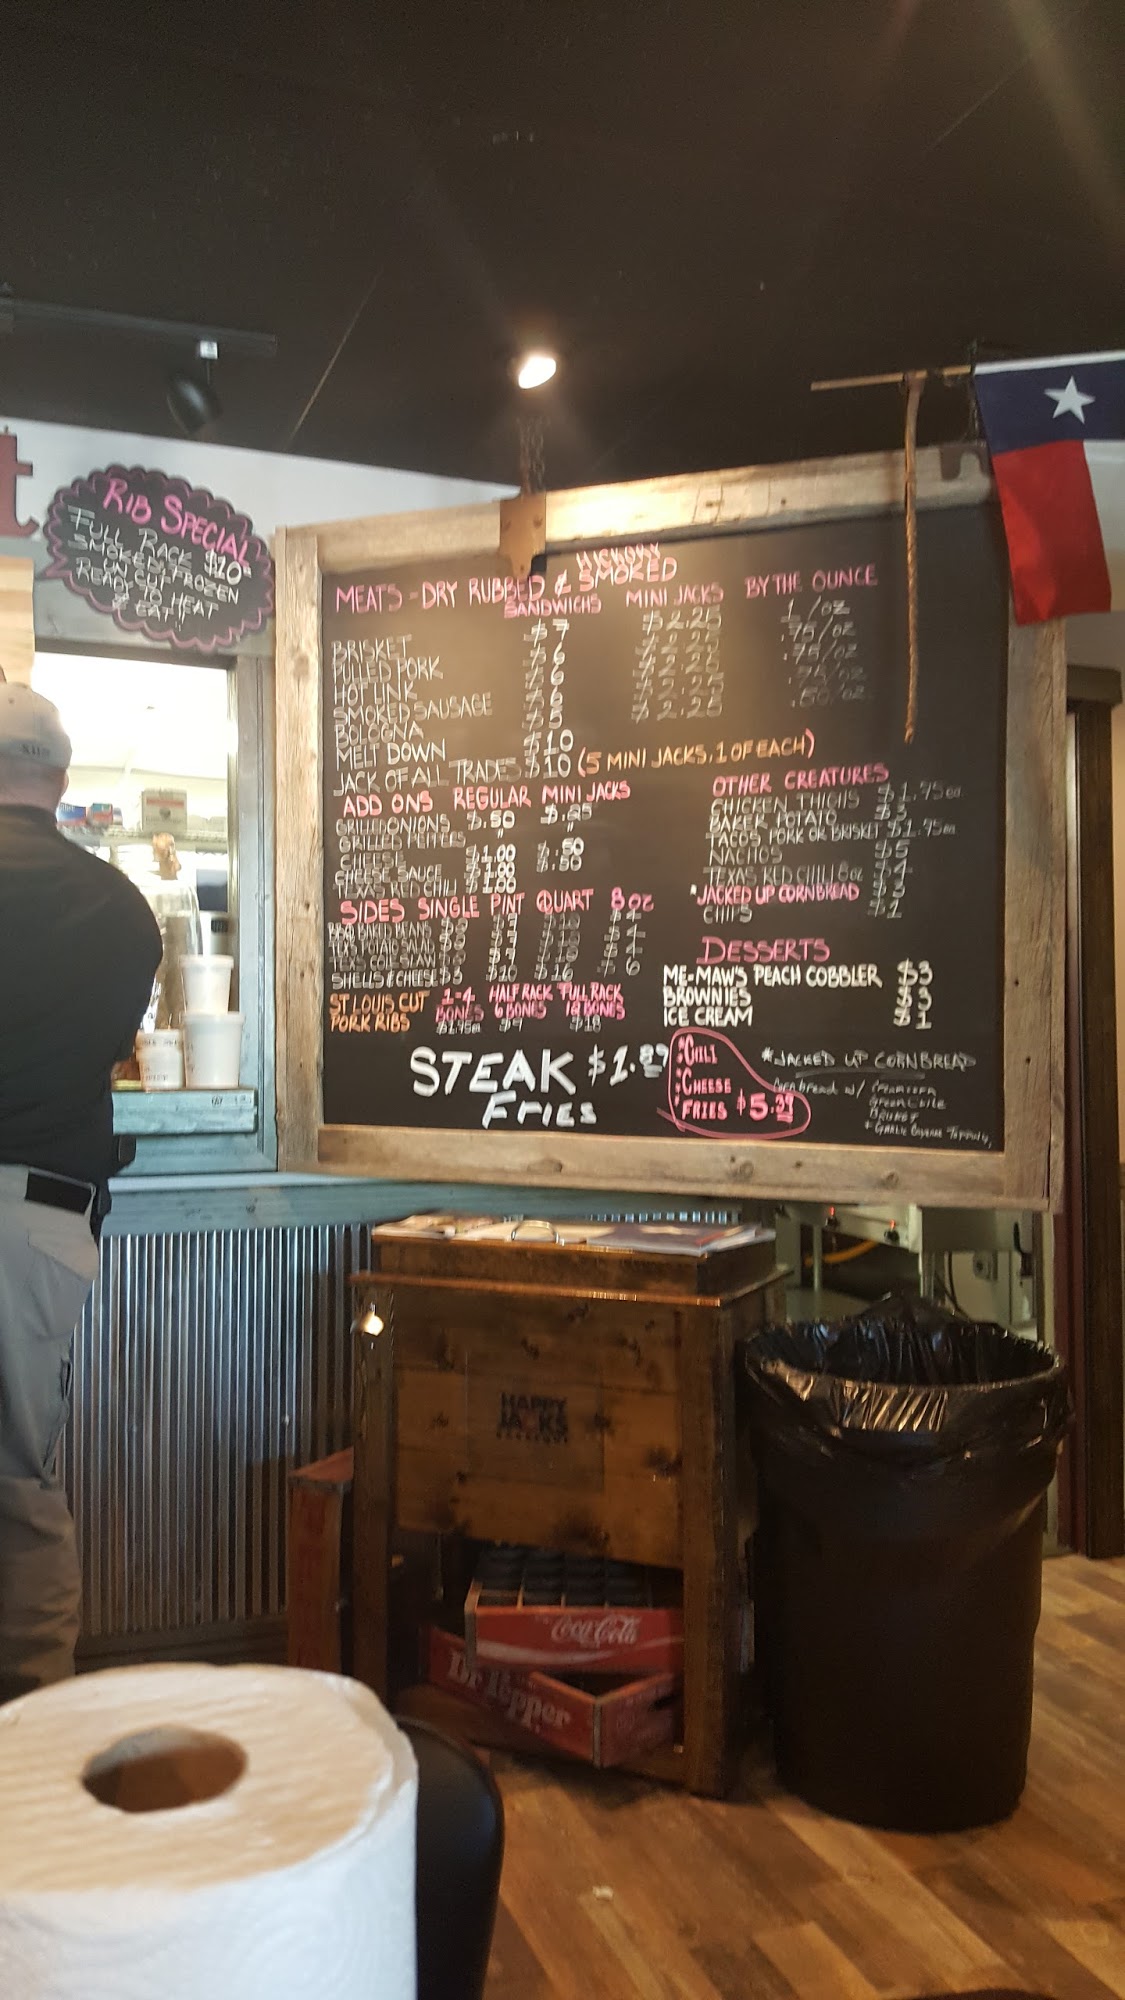 t
RIB SPECIAL
FULL RACK $10
SMOKED & FROZEN
UN CUT
READY TO HEAT
& EAT!!
HICKORY
MEATS - DRY RUBBED & SMOKED
SANDWICHS MINI JACKS BY THE OUNCE
BRISKET $7 $2.25 1/OZ
PULLED PORK $6 $2.25 .75/OZ
HOT LINK $6 $2.25 .75/OZ
SMOKED SAUSAGE $6 $2.25 .75/OZ
BOLOGNA $5 $2.25 .50/OZ
MELT DOWN $10
JACK OF ALL TRADES $10 (5 MINI JACKS, 1 OF EACH)
ADD ONS REGULAR MINI JACKS
GRILLED ONIONS $.50 $.25
GRILLED PEPPERS " "
CHEESE $1.00 $.50
CHEESE SAUCE $1.00 $.50
TEXAS RED CHILI $1.00
SIDES SINGLE PINT QUART 8OZ
BBQ BAKED BEANS
TEXAS POTATO SALAD
TEXAS COLE SLAW
SHELLS & CHEESE $3 $10 $16 6
ST LOUIS CUT 1-4 HALF RACK FULL RACK
PORK RIBS BONES 6 BONES 12 BONES
$1.95ea $9 $18
STEAK $1.89
FRIES
OTHER CREATURES
CHICKEN THIGHS $1.75 ea.
BAKER POTATO
TACOS PORK OR BRISKET $1.75ea
NACHOS $5
TEXAS RED CHILI 8oz
*JACKED UP CORNBREAD
CHIPS
DESSERTS
ME-MAW'S PEACH COBBLER $3
BROWNIES $3
ICE CREAM $1
*CHILI
*CHEESE
*FRIES $5.39
*JACKED UP CORNBREAD
Cornbread w/
Green Chile
Brisket
+ Garlic Topping
HAPPY
JACKS
Coca-Cola
Dr Pepper